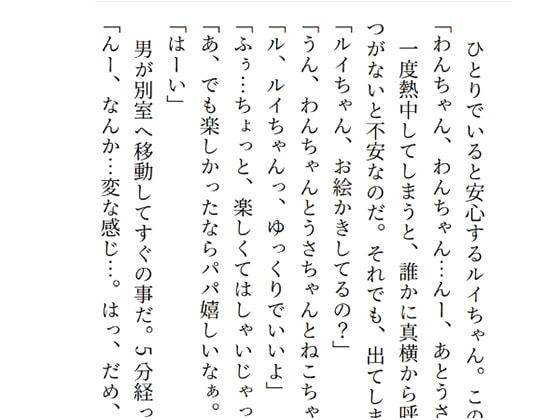 ひとりでいると安心するルイちゃん。この
「わんちゃん、わんちゃん…んー、あとうさ
一度熱中してしまうと、誰かに真横から呼
つがないと不安なのだ。それでも、出てしま
「ルイちゃん、お絵かきしてるの？」
「うん、わんちゃんとうさちゃんとねこちゃ
「ル、ルイちゃんっ、ゆっくりでいいよ」
「ふぅ…ちょっと、楽しくてはしゃいじゃっ
「あ、でも楽しかったならパパ嬉しいなぁ。
「はーい」
男が別室へ移動してすぐの事だ。5分経っ
「んー、なんか…変な感じ…。はっ、だめ、